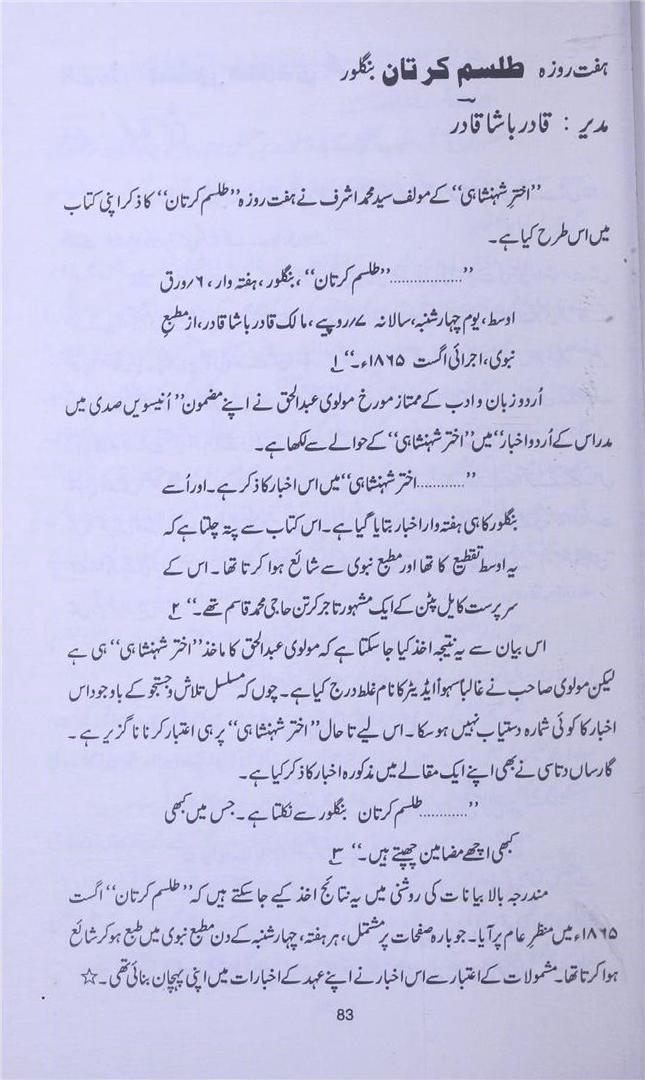 ہفت روزہ طلسم کرتان بنگلور
مدیر : قادر باشا قادر
”اخترِ شہنشاہی“ کے مولف سید محمد اشرف نے ہفت روزہ ”طلسم کرتان“ کا ذکر اپنی کتاب
میں اس طرح کیا ہے۔
”..................”طلسم کرتان“، بنگلور، ہفتہ وار، ۶/ورق
اوسط، یوم چہارشنبہ، سالانہ ۷/روپے، مالک قادر باشا قادر، از مطبعِ
نبوی، اجرائی اگست ۱۸۶۵ء۔“ ۱
اُردو زبان و ادب کے ممتاز مورخ مولوی عبدالحق نے اپنے مضمون ”اُنیسویں صدی میں
مدراس کے اُردو اخبار“ میں ”اختر شہنشاہی“ کے حوالے سے لکھا ہے۔
”............اختر شہنشاہی“ میں اس اخبار کا ذکر ہے۔ اور اُسے
بنگلور کا ہی ہفتہ وار اخبار بتایا گیا ہے۔ اس کتاب سے پتہ چلتا ہے کہ
یہ اوسط تقطیع کا تھا اور مطبع نبوی سے شائع ہوا کرتا تھا۔ اس کے
سرپرست کایل پٹن کے ایک مشہور تاجر کرتن حاجی محمد قاسم تھے۔“ ۲
اس بیان سے یہ نتیجہ اخذ کیا جاسکتا ہے کہ مولوی عبدالحق کا ماخذ ”اختر شہنشاہی“ ہی ہے
لیکن مولوی صاحب نے غالباً سہواً ایڈیٹر کا نام غلط درج کیا ہے۔ چوں کہ مسلسل تلاش و جستجو کے باوجود اس
اخبار کا کوئی شمارہ دستیاب نہیں ہوسکا۔ اس لیے تا حال ”اختر شہنشاہی“ پر ہی اعتبار کرنا ناگزیر ہے۔
گارساں دتاسی نے بھی اپنے ایک مقالے میں مذکورہ اخبار کا ذکر کیا ہے۔
”............طلسم کرتان بنگلور سے نکلتا ہے۔ جس میں کبھی
کبھی اچھے مضامین چھپتے ہیں۔“ ۳
مندرجہ بالا بیانات کی روشنی میں یہ نتائج اخذ کیے جاسکتے ہیں کہ ”طلسم کرتان“ اگست
۱۸۶۵ء میں منظرِ عام پر آیا۔ جو بارہ صفحات پر مشتمل، ہر ہفتہ، چہارشنبہ کے دن مطبع نبوی میں طبع ہوکر شائع
ہوا کرتا تھا۔ مشمولات کے اعتبار سے اس اخبار نے اپنے عہد کے اخبارات میں اپنی پہچان بنائی تھی۔ ☆
83